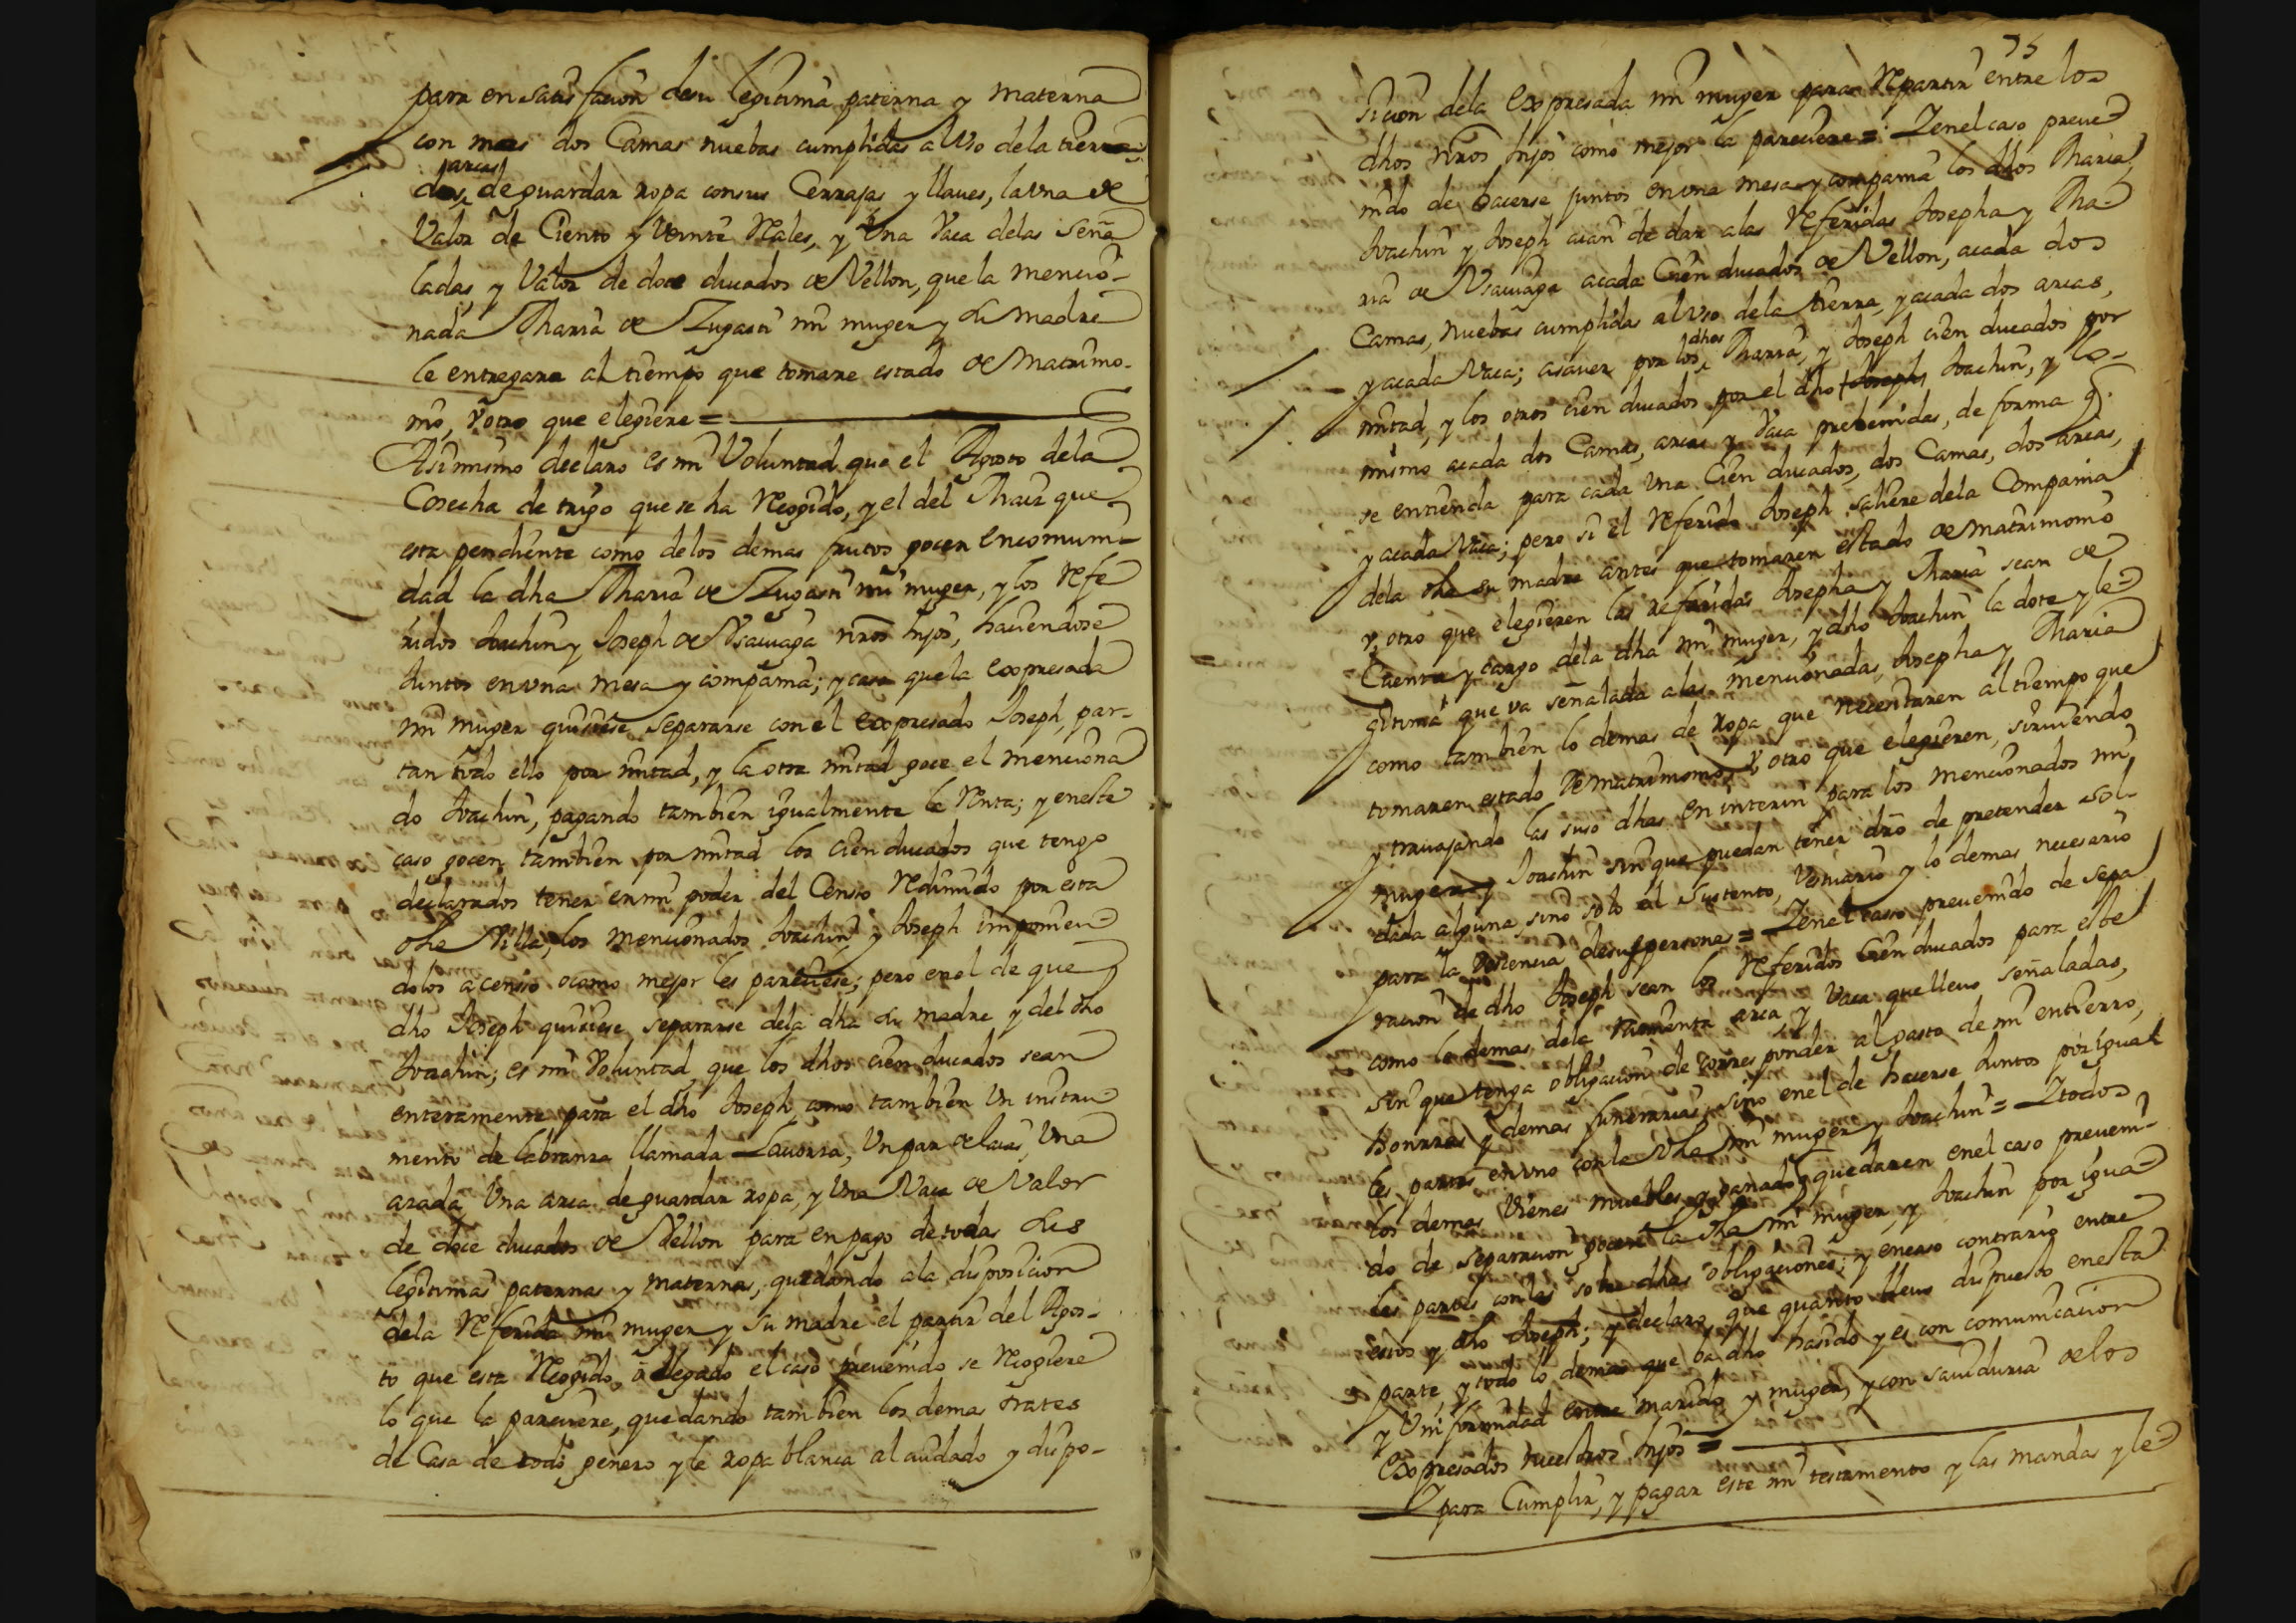 para en satisfacion desu legitima paterna y materna
con mas dos Camas nuebas cumplidas a Vso dela tierra
dos arcas de guardar ropa consus Cerrajas y llaues, la vna de
Valor de Ciento y Veinte Rales, y Vna Vaca delas seña
ladas, y Valor de doce ducados de Vellon, que la mencio-
nada Maria de Zugasti mi muger y su madre
le entregara al tiempo que tomare estado de Matrimo-
nio, v otro que elegiere =
Asimismo declaro es mi Voluntad que el Agosto dela
Cosecha de trigo que se ha Recogido, y el del Maiz que
esta pendiente como delos demas frutos gocen encomuni-
dad la dha Maria de Zugasti mi muger, y los Refe
ridos Joachin y Joseph de Vsauiaga nros hijos, haciendose
Juntos en vna mesa y compania; y caso que la expresada
mi muger quisiese separarse con el expresado Joseph, par-
tan todo ello por mitad, y la otra mitad goce el menciona
do Joachin, pagando tambien igualmente la Renta; y eneste
caso gocen tambien por mitad los cien ducados que tengo
declarados tener en mi poder del Censo Redimido por esta
dha Villa, los mencionados Joachin y Joseph imponien
dolos a censo o como mejor les pareciese; pero en el de que
dho Joseph quisiese separarse dela dha su madre y del dho
Joachin; es mi Voluntad que los dhos cien ducados sean
enteramente para el dho Joseph como tambien Vn instru
mento de labranza llamada Lauorra, Vn par de laias, Vna
arada, Vna arca de guardar ropa, y Vna Vaca de Valor
de doce ducados de Vellon para en pago de todas sus
legitimas paternas y maternas, quedando ala disposicion
dela Referida mi muger y su madre el partir del Agos-
to que esta Recogido, o llegado el caso preuenido se Recogiere
lo que la pareciere, quedando tambien los demas trates
de Casa de todo genero y le ropa blanca al cuidado y dispo-
75
sicion dela expresada mi muger para Repartir entre los
dhos nros hijos como mejor la pareciere = Y en el caso preue
nido de hacerse juntos en vna mesa y compania los dhos Maria,
Joachin y Joseph aian de dar alas Referidas Josepha y Ma
ria de Vsauiaga acada Cien ducados de Vellon, acada dos
Camas, nuebas cumplidas al vso dela tierra, y acada dos arcas,
y acada Vaca; asauer por los dhos Maria, y Joseph cien ducados por
mitad, y los otros cien ducados por el dho Joseph Joachin, y lo
mismo acada dos Camas, arcas y Vaca preuenidas, de forma q.
se entienda para cada vna Cien ducados, dos Camas, dos arcas,
y acada Vaca; pero si el Referido Joseph saliere dela Compania
dela dha su madre antes que tomaren estado de Matrimonio
v, otro que elegieren las referidas Josepha y Maria sean de
Cuenta y cargo dela dha mi muger, y dho Joachin la dote y le
gitima que va señalada alas mencionadas Josepha y Maria
como tambien lo demas de ropa que necesitaren al tiempo que
tomaren estado de matrimonio, v, otro que elegieren, siruiendo
y trauajando las suso dhas en interin para los mencionados mi
muger y Joachin sin que puedan tener dro de pretender sol-
dada alguna, sino solo el sustento, Vestuario y lo demas necesario
para la decencia desus personas = Y en el caso preuenido de sepa
racion de dho Joseph sean los Referidos cien ducados para este
como lo demas dela Herramienta arca y Vaca que lleuo señaladas,
sin que tenga obligacion de corresponder al gasto de mi entierro,
Honrras y demas funerarias sino en el de hacerse Juntos por igua
les partes en vno con la dha mi muger y Joachin = Y todos
los demas Vienes muebles y ganados quedaren en el caso preueni-
do de separacion gocen la dha mi muger, y Joachin por igua
les partes con las sobre dhas obligaciones; y en caso contrario entre
estos y dho Joseph; y declaro que quanto lleuo dispuesto en esta
parte, y todo lo demas que ba dho ha sido y es con comunicacion
y Vniformidad entre marido y muger, y con sauiduria de los
expresados nuestros hijos =
Y para Cumplir, y pagar este mi testamento y las mandas y le